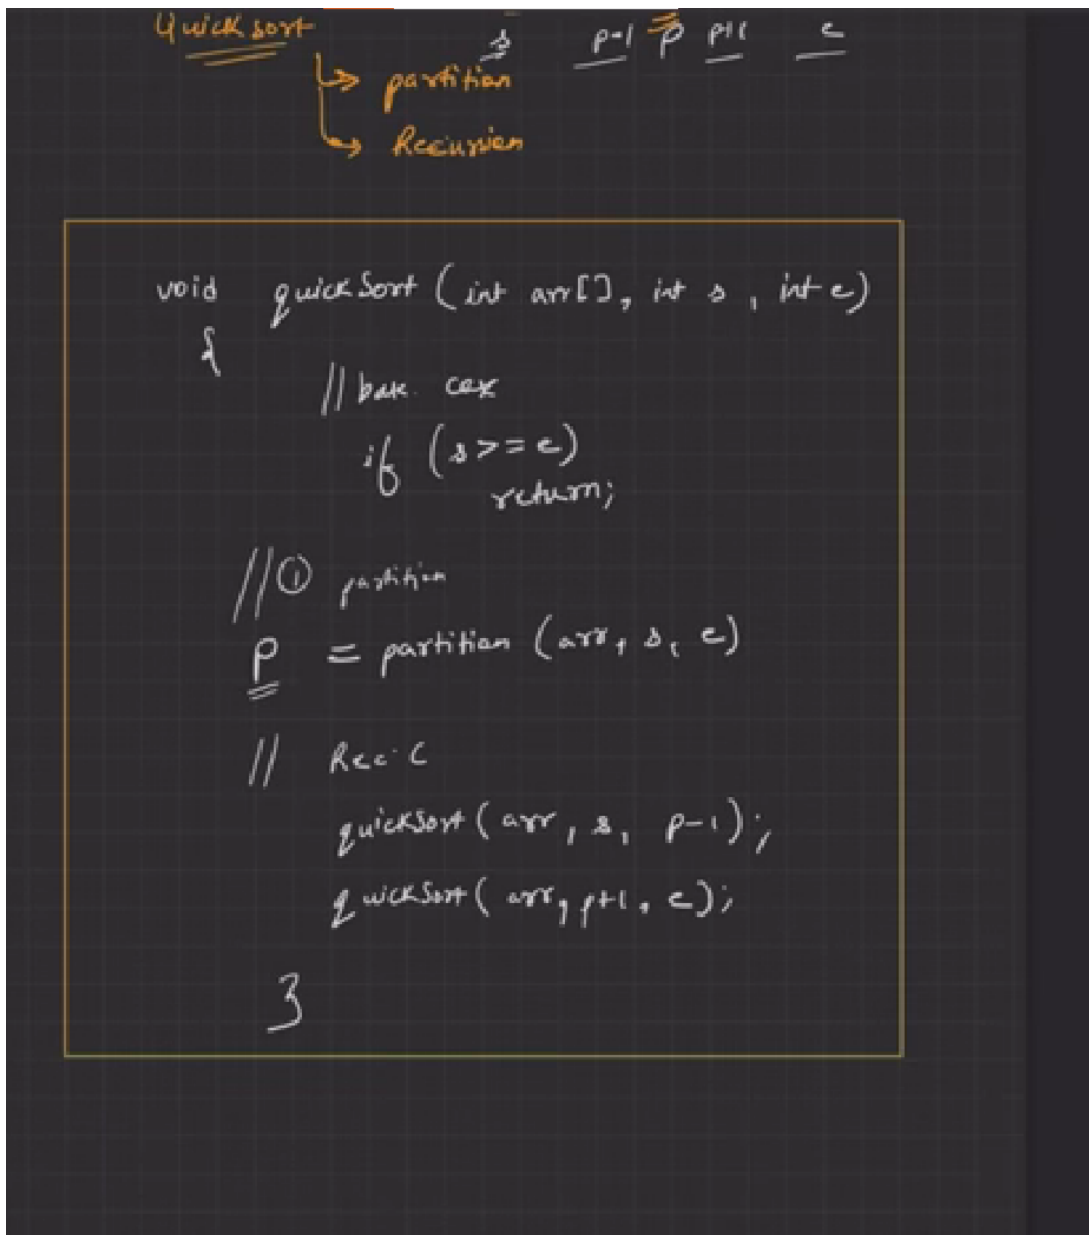 Quick sort
s p-1 p p+1 e
partition
Recursion
void quickSort (int arr[], int s, int e)
{
// base case
if (s>=e)
return;
//① partition
P = partition (arr, s, e)
// Rec. C
quickSort (arr, s, p-1);
quickSort (arr, p+1, e);
}